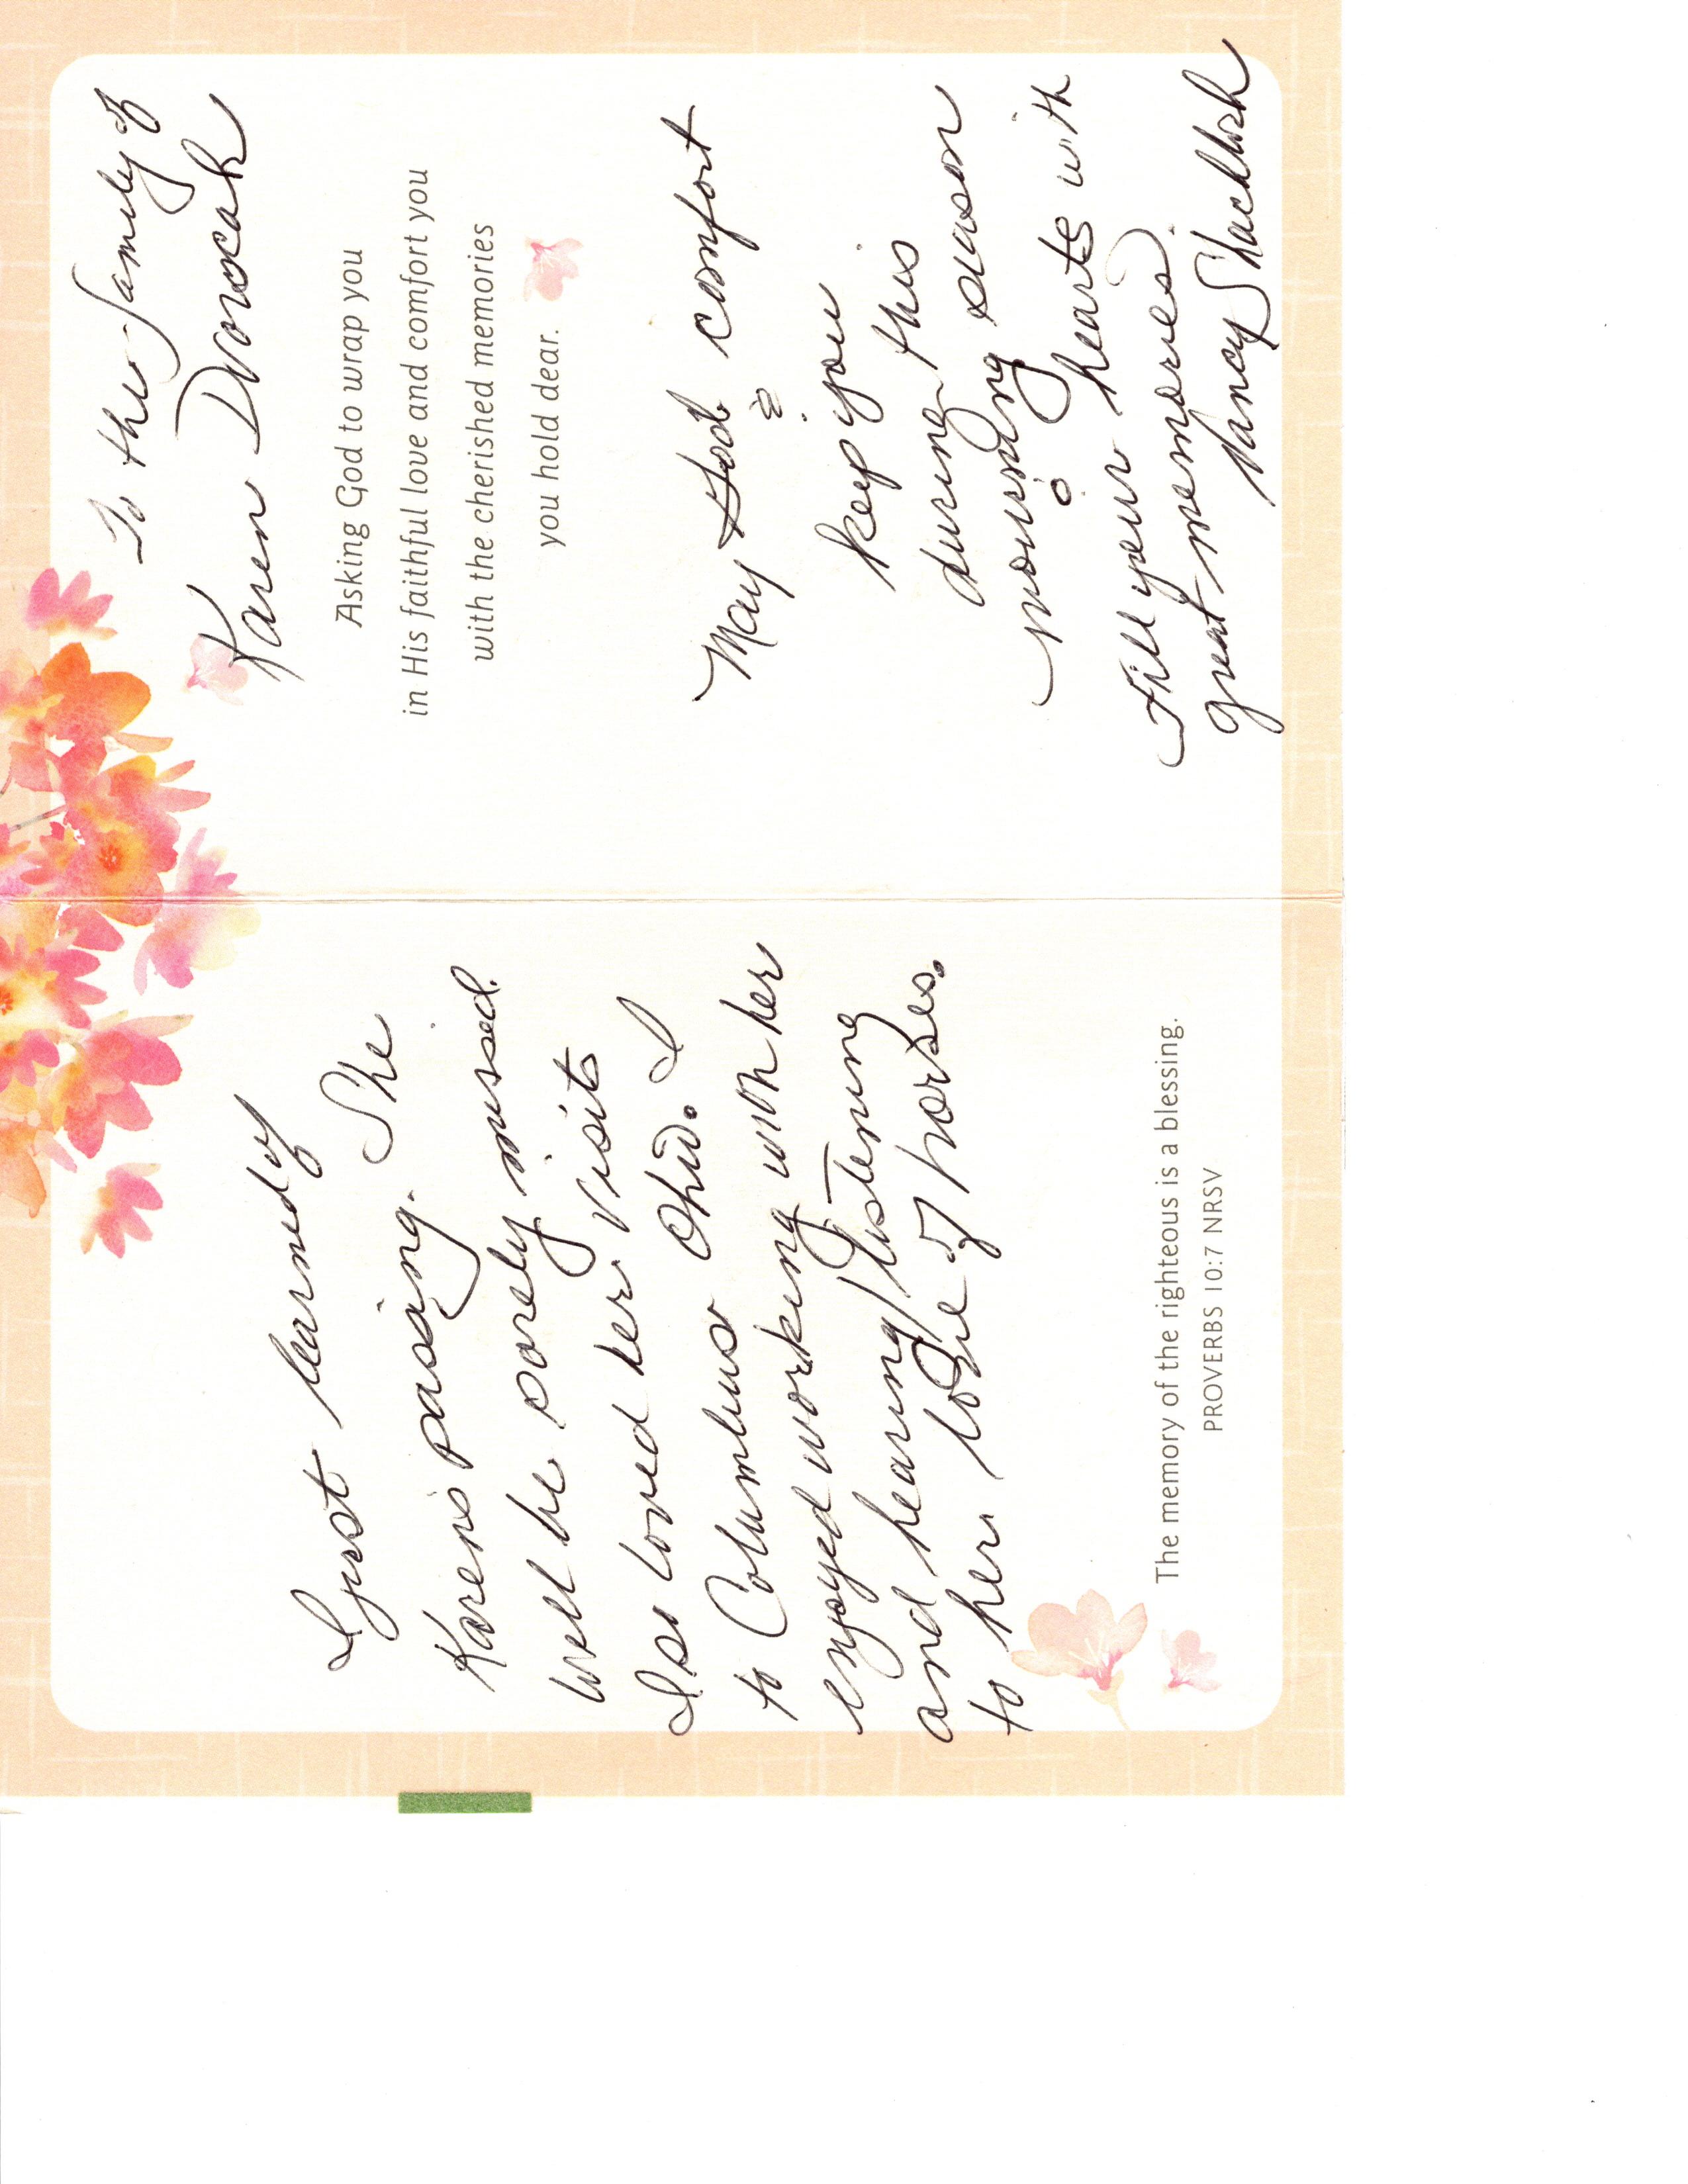 I just learned of
Karen's passing. She
will be sorely missed.
I so loved her visits
to Columbus Ohio. I
enjoyed working with her
and hearing/listening
to her love of horses.
The memory of the righteous is a blessing.
PROVERBS 10:7 NRSV
To the family of
Karen
Asking God to wrap you
in His faithful love and comfort you
with the cherished memories
you hold dear.
May God comfort
&
keep you
during this
mourning season
fill your hearts with
great memories.
Nancy